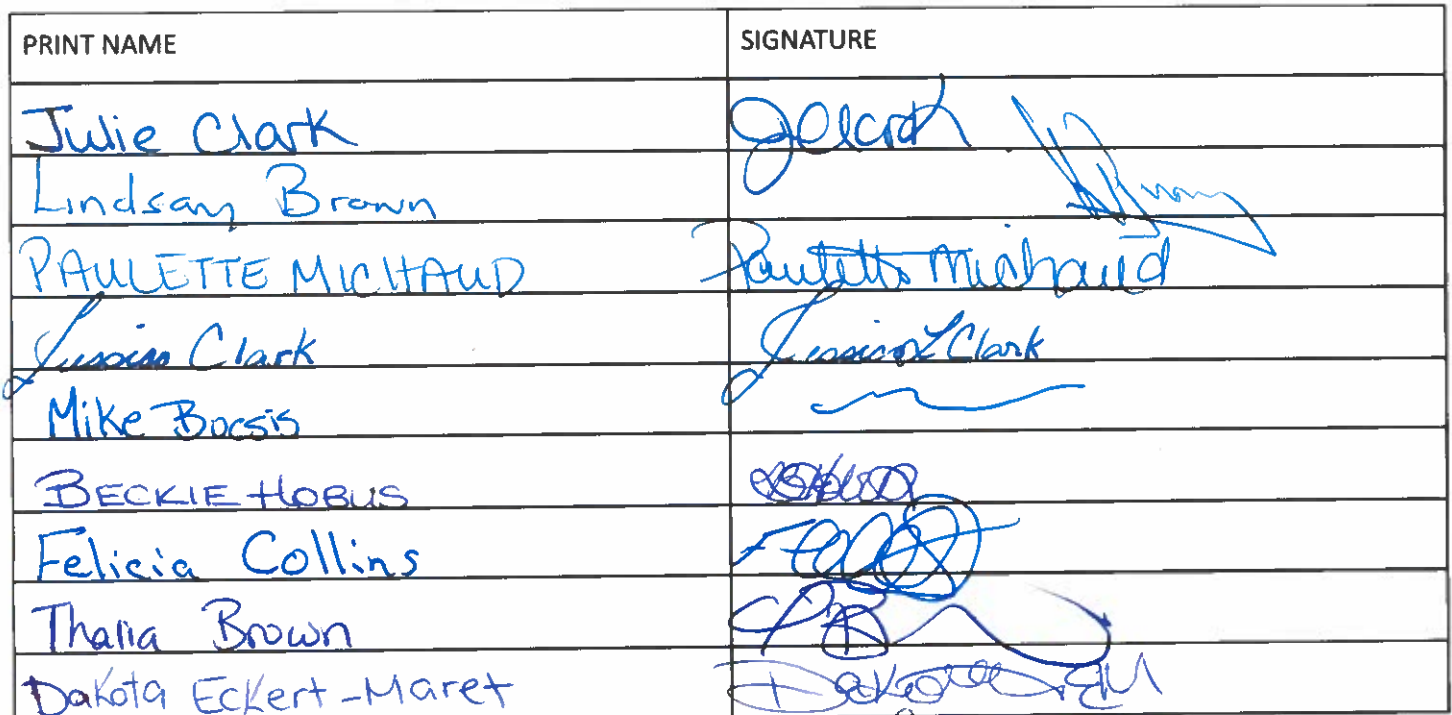 PRINT NAME SIGNATURE
Julie Clark JClark
Lindsay Brown
PAULETTE MICHAUD Paulette Michaud
Jessica Clark Jessica L Clark
Mike Bocsis
BECKIE HOBUS
Felicia Collins
Thalia Brown
Dakota Eckert-Maret Dakota EM